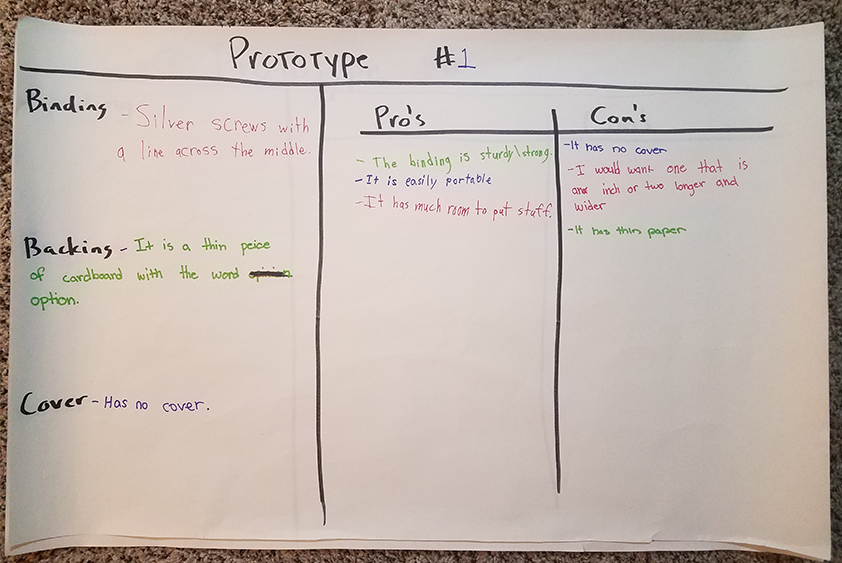 Prototype #1
Binding - Silver screws with
a line across the middle.
Backing - It is a thin peice
of cardboard with the word
option.
Cover - Has no cover.
Pro's
- The binding is sturdy\strong.
- It is easily portable
- It has much room to put stuff.
Con's
- It has no cover
- I would want one that is
inch or two longer and
wider
- It has thin paper